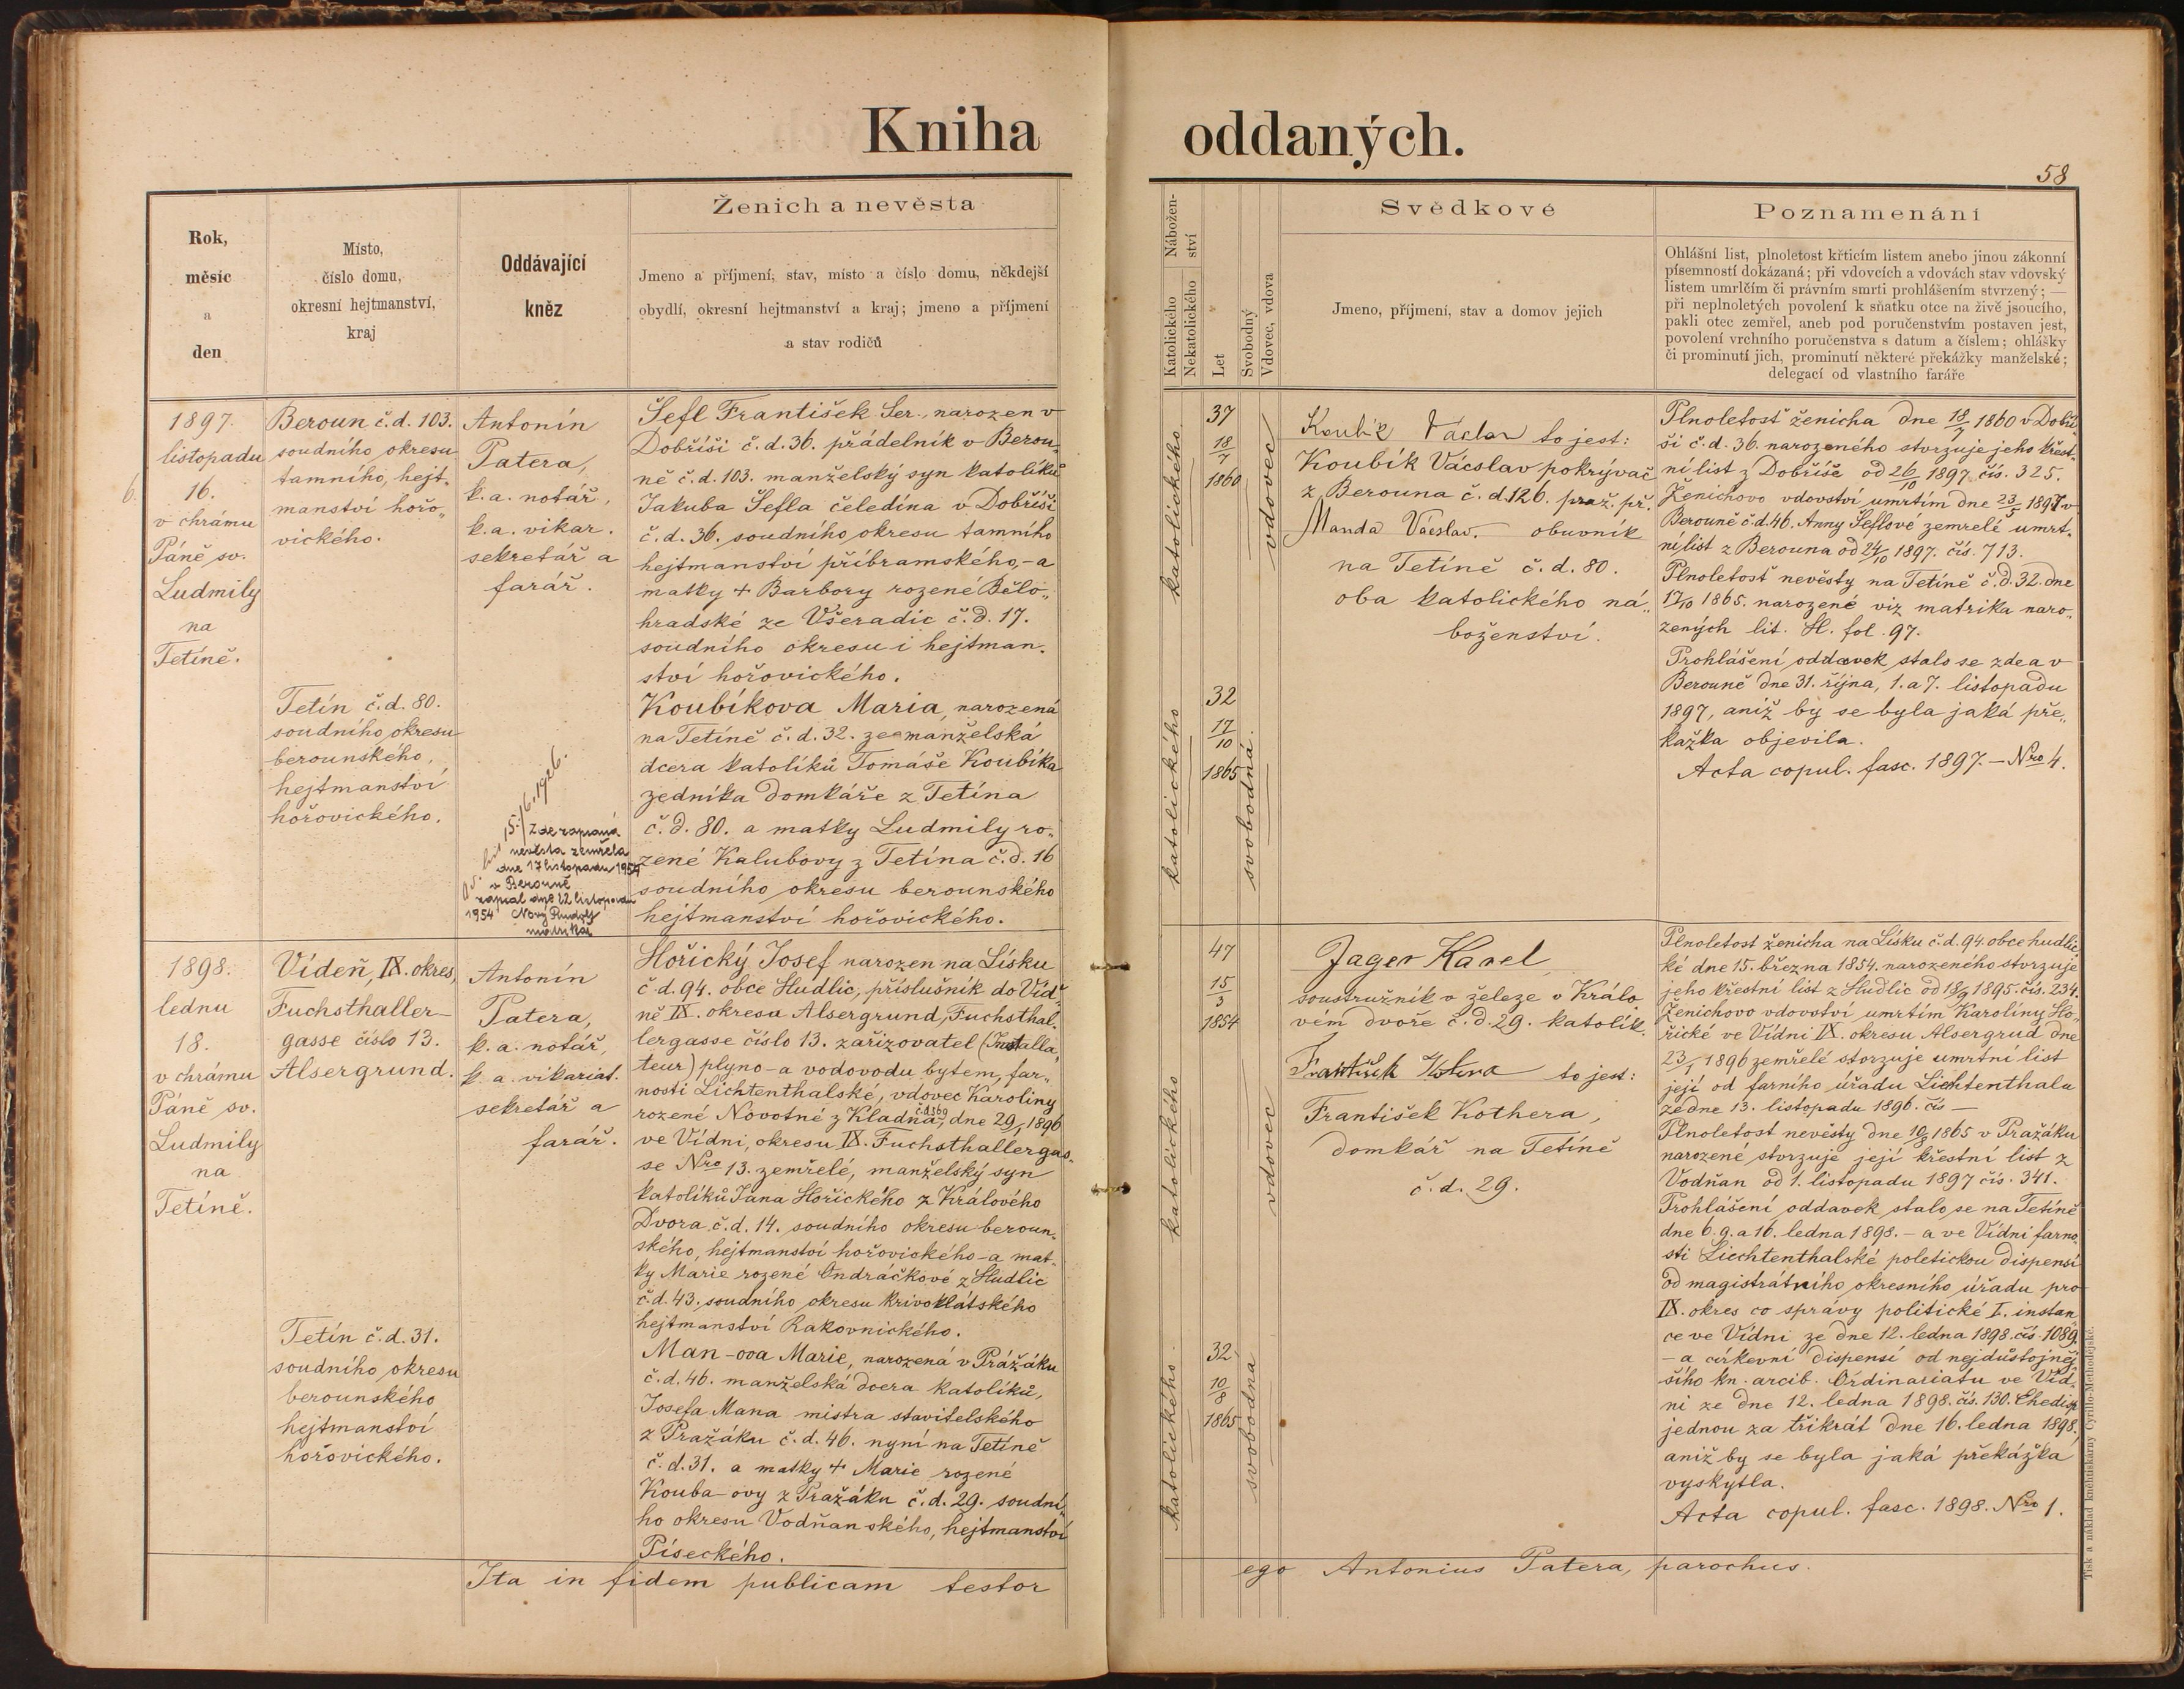 Kniha oddaných.
58
Rok,
měsíc
a
den
Místo,
číslo domu,
okresní hejtmanství,
kraj
Oddávající
kněz
Ženich a nevěsta
Jmeno a příjmení, stav, místo a číslo domu, někdejší
obydlí, okresní hejtmanství a kraj; jmeno a příjmení
a stav rodičů
Nábožen-
ství
Katolického
Nekatolického
Let
Svobodný
Vdovec, vdova
Svědkové
Jmeno, příjmení, stav a domov jejich
Poznamenání
Ohlášní list, plnoletost křticím listem anebo jinou zákonní
písemností dokázaná; při vdovcích a vdovách stav vdovský
listem umrlčím či právním smrti prohlášením stvrzený; —
při neplnoletých povolení k sňatku otce na živě jsoucího,
pakli otec zemřel, aneb pod poručenstvím postaven jest,
povolení vrchního poručenstva s datum a číslem; ohlášky
či prominutí jich, prominutí některé překážky manželské;
delegací od vlastního faráře
1897.
listopadu
6.
16.
v chrámu
Páně sv.
Ludmily
na
Tetíně.
Beroun č.d. 103.
soudního okresu
tamního, hejt„
manství hořo„
vického.
Tetín č.d. 80.
soudního okresu
berounského,
hejtmanství
hořovického.
Antonín
Patera,
k.a. notář,
k.a. vikar.
sekretář a
farář.
15./6. 1926.
Zde zapsaná
nevěsta zemřela
dne 17 listopadu 1954
v Berouně
zapsal dne 22 listopadu
1954 Nový Rudolf
matrikář
Šefl František Ser., narozen v
Dobříši č.d. 36. přádelník v Berou„
ně č.d. 103. manželský syn katolíků
Jakuba Šefla čeledína v Dobříši
č.d. 36. soudního okresu tamního
hejtmanství příbramského, - a
matky + Barbory rozené Bělo„
hradské ze Všeradic č.d. 17.
soudního okresu i hejtman„
ství hořovického.
Koubíkova Maria, narozená
na Tetíně č.d. 32. ze manželská
dcera katolíků Tomáše Koubíka
zedníka domkáře z Tetína
č.d. 80. a matky Ludmily ro„
zené Kalubovy z Tetína č.d. 16
soudního okresu berounského
hejtmanství hořovického.
katolického
37
18/7
1860
vdovec
katolického
32
17/10
1865
svobodná.
Koubík Václav to jest:
Koubík Václav pokrývač
z Berouna č.d. 126. praž. př.
Manda Václav. obuvník
na Tetíně č.d. 80.
oba katolického ná„
boženství.
Plnoletosť ženicha dne 18/7 1860 v Dobří„
ši č.d. 36. narozeného stvrzuje jeho křest„
ní list z Dobříše od 26/10 1897. čís. 325.
Ženichovo vdovství umrtím dne 23/5 1897 v
Berouně č.d. 46. Anny Šeflové zemřelé umrt„
ní list z Berouna od 24/10 1897. čís. 713.
Plnoletosť nevěsty na Tetíně č.d. 32. dne
17/10 1865. narozené viz matrika naro„
zených lit. H. fol. 97.
Prohlášení oddavek stalo se zde a v
Berouně dne 31. října, 1. a 7. listopadu
1897, aniž by se byla jaká pře„
kažka objevila.
Acta copul. fasc. 1897. — Nro 4.
1898.
lednu
18.
v chrámu
Páně sv.
Ludmily
na
Tetíně.
Vídeň, IX. okres,
Fuchsthaller-
gasse číslo 13.
Alsergrund.
Tetín č.d. 31.
soudního okresu
berounského
hejtmanství
hořovického.
Antonín
Patera,
k.a. notář,
k.a. vikariat.
sekretář a
farář.
Hořický Josef narozen na Lísku
č.d. 94. obce Hudlic, příslušník do Víd„
ně IX. okresu Alsergrund, Fuchsthal„
lergasse číslo 13. zařizovatel (Installa„
teur) plyno- a vodovodu bytem, far„
nosti Lichtenthalské, vdovec Karoliny
rozené Novotné z Kladna, dne 29/1 1896
ve Vídni, okresu IX. Fuchsthallergas„
se Nro 13. zemřelé, manželský syn
katolíků Jana Hořického z Králového
Dvora č.d. 14. soudního okresu beroun„
ského, hejtmanství hořovického - a mat„
ky Marie rozené Ondráčkové z Hudlic
č.d. 43. soudního okresu křivoklátského
hejtmanství Rakovnického.
Man-ova Marie, narozená v Prážáku
č.d. 46. manželská dcera katolíků,
Josefa Mana mistra stavitelského
z Pražáku č.d. 46. nyní na Tetíně
č.d. 31. a matky + Marie rozené
Kouba-ovy z Pražáku č.d. 29. soudní„
ho okresu Vodňanského, hejtmanství
Píseckého.
katolického
47
15/3
1854
vdovec
katolického.
32
10/8
1865
svobodná
Jager Karel
soustružník v železe v Králo
vém dvoře č.d. 29. katolík.
František Kothera to jest:
František Kothera,
domkář na Tetíně
č.d. 29.
Plnoletost ženicha na Lísku č.d. 94. obce hudlic„
ké dne 15. března 1854. narozeného stvrzuje
jeho křestní list z Hudlic od 18/9 1895. čís. 234.
Ženichovo vdovství umrtím Karolíny Ho„
řické ve Vídni IX. okresu Alsergrud dne
23/1 1896 zemřelé stvrzuje umrtní list
její od farního úřadu Liechtenthala
ze dne 13. listopadu 1896. čís —
Plnoletost nevěsty dne 10/8 1865 v Pražáku
narozené stvrzuje její křestní list z
Vodňan od 1. listopadu 1897 čís. 341.
Prohlášení oddavek stalo se na Tetíně
dne 6. 9. a 16. ledna 1898. - a ve Vídni farno„
sti Liechtenthalské poletickou dispensí
od magistrátního okresního úřadu pro
IX. okres co správy politické I. instan„
ce ve Vídni ze dne 12. ledna 1898. čís. 1089.
- a církevní dispensí od nejdůstojněj„
šího kn. arcib. Ordinariatu ve Víd„
ni ze dne 12. ledna 1898. čís. 130.
jednou za třikrát dne 16. ledna 1898,
aniž by se byla jaká překážka
vyskytla.
Acta copul. fasc. 1898. Nro 1.
Ita in fidem publicam testor ego Antonius Patera, parochus.
Tisk a náklad knihtiskárny Cyrillo-Methodějské.